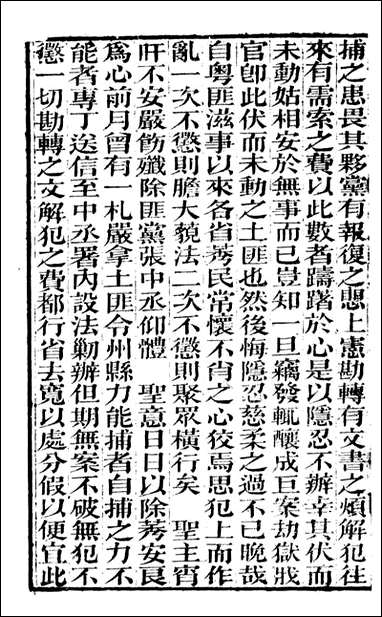 捕之患畏其夥黨有報復之憩上憲勘轉有文書之煩解犯往
來有需索之費以此數者躊躇於心是以隱忍不辦幸其伏而
未動姑相安於無事而已豈知一旦竊發輒釀成巨案劫獄戕
官卽此伏而未動之土匪也然後悔隱忍慈柔之過不已晚哉
自粵匪滋事以來各省莠民常懷不肖之心狡焉思犯上而作
亂一次不懲則膽大藐法二次不懲則聚眾橫行矣　聖主宵
旰不安嚴飭殲除匪黨張中丞仰體　聖意日日以除莠安良
爲心前月曾有一札嚴拿土匪令州縣力能捕者自捕之力不
能者專丁送信至中丞署內設法勦辦但期無案不破無犯不
懲一切勘轉之文解犯之費都行省去寬以處分假以便宜此